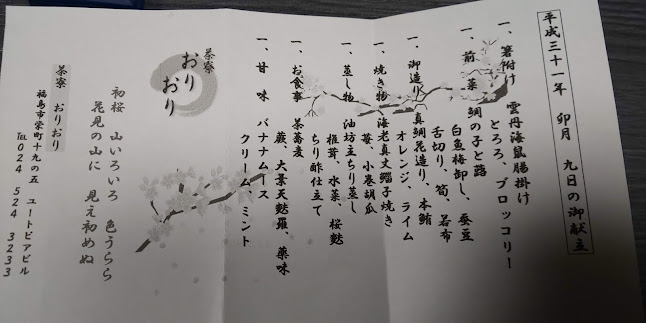 平成三十一年 卯月 九日の御献立
一、箸附け 雲丹海鼠腸掛け
とろろ、ブロッコリー
一、前菜 鯛の子と蕗
白魚梅卸し、蚕豆
舌切り、筍、若布
一、御造り 真鯛花造り、本鮪
オレンジ、ライム
一、焼き物 海老真丈鰮子焼き
苺、小巻胡瓜
一、蒸し物 油坊主ちり蒸し
椎茸、水菜、桜麩
ちり酢仕立て
一、お食事 茶蕎麦
蕨、大葉天麩羅、薬味
一、甘味 バナナムース
クリーム、ミント
茶寮
おり
おり
初桜 山いろいろ 色うらら
花見の山に 見え初めぬ
茶寮 おりおり
福島市栄町十九の五 ユートピアビル
TEL 024 524 3233